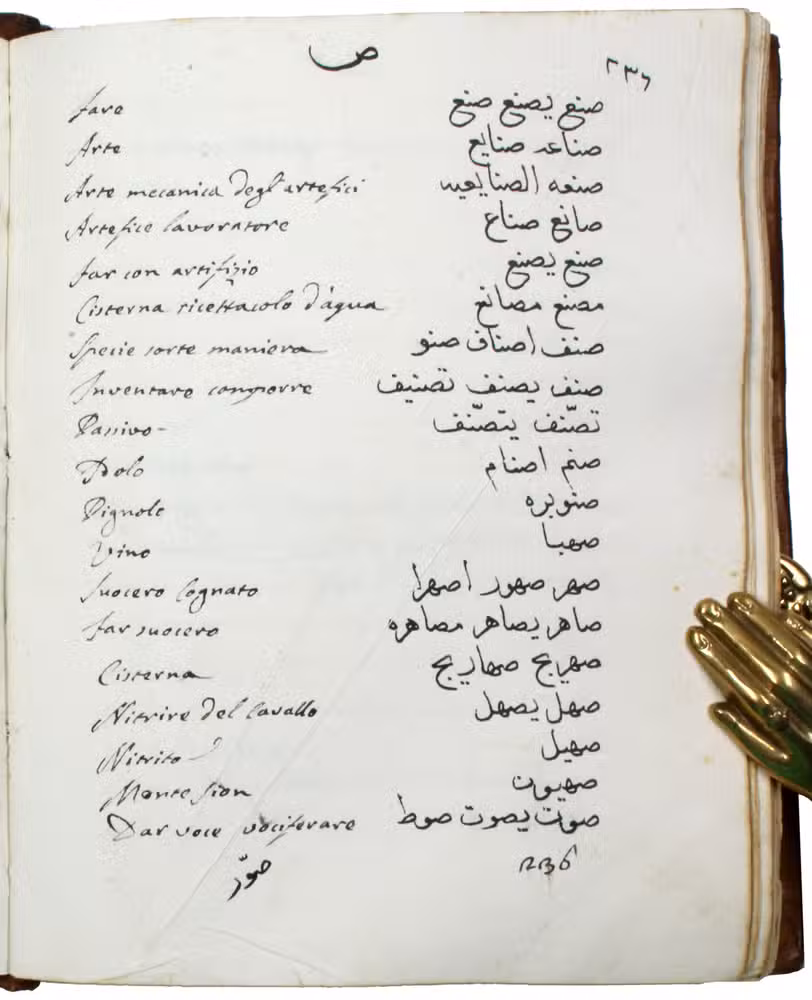 ص
٢٣٦
fare صنع يصنع صنع
Arte صناعه صنايع
Arte mecanica degl'artefici صنعه الصنايعيه
Artefice lavoratore صانع صناع
far con artifizio صنع يصنع
Cisterna ricettacolo d'àgua مصنع مصانع
Specie sorte maniera صنف اصناف صنو
Inventare comporre صنف يصنف تصنيف
Passivo- تصنّف يتصنّف
Idolo صنم اصنام
Pignole صنوبره
Vino صهبا
Suocero Cognato صهر صهور اصهرا
far suocero صاهر يصاهر مصاهره
Cisterna صهريج صهاريج
Nitrire del Cavallo صهل يصهل
Nitrito صهيل
Monte Sion صهيون
Dar voce vociferare صوت يصوت صوط
صوّر 236